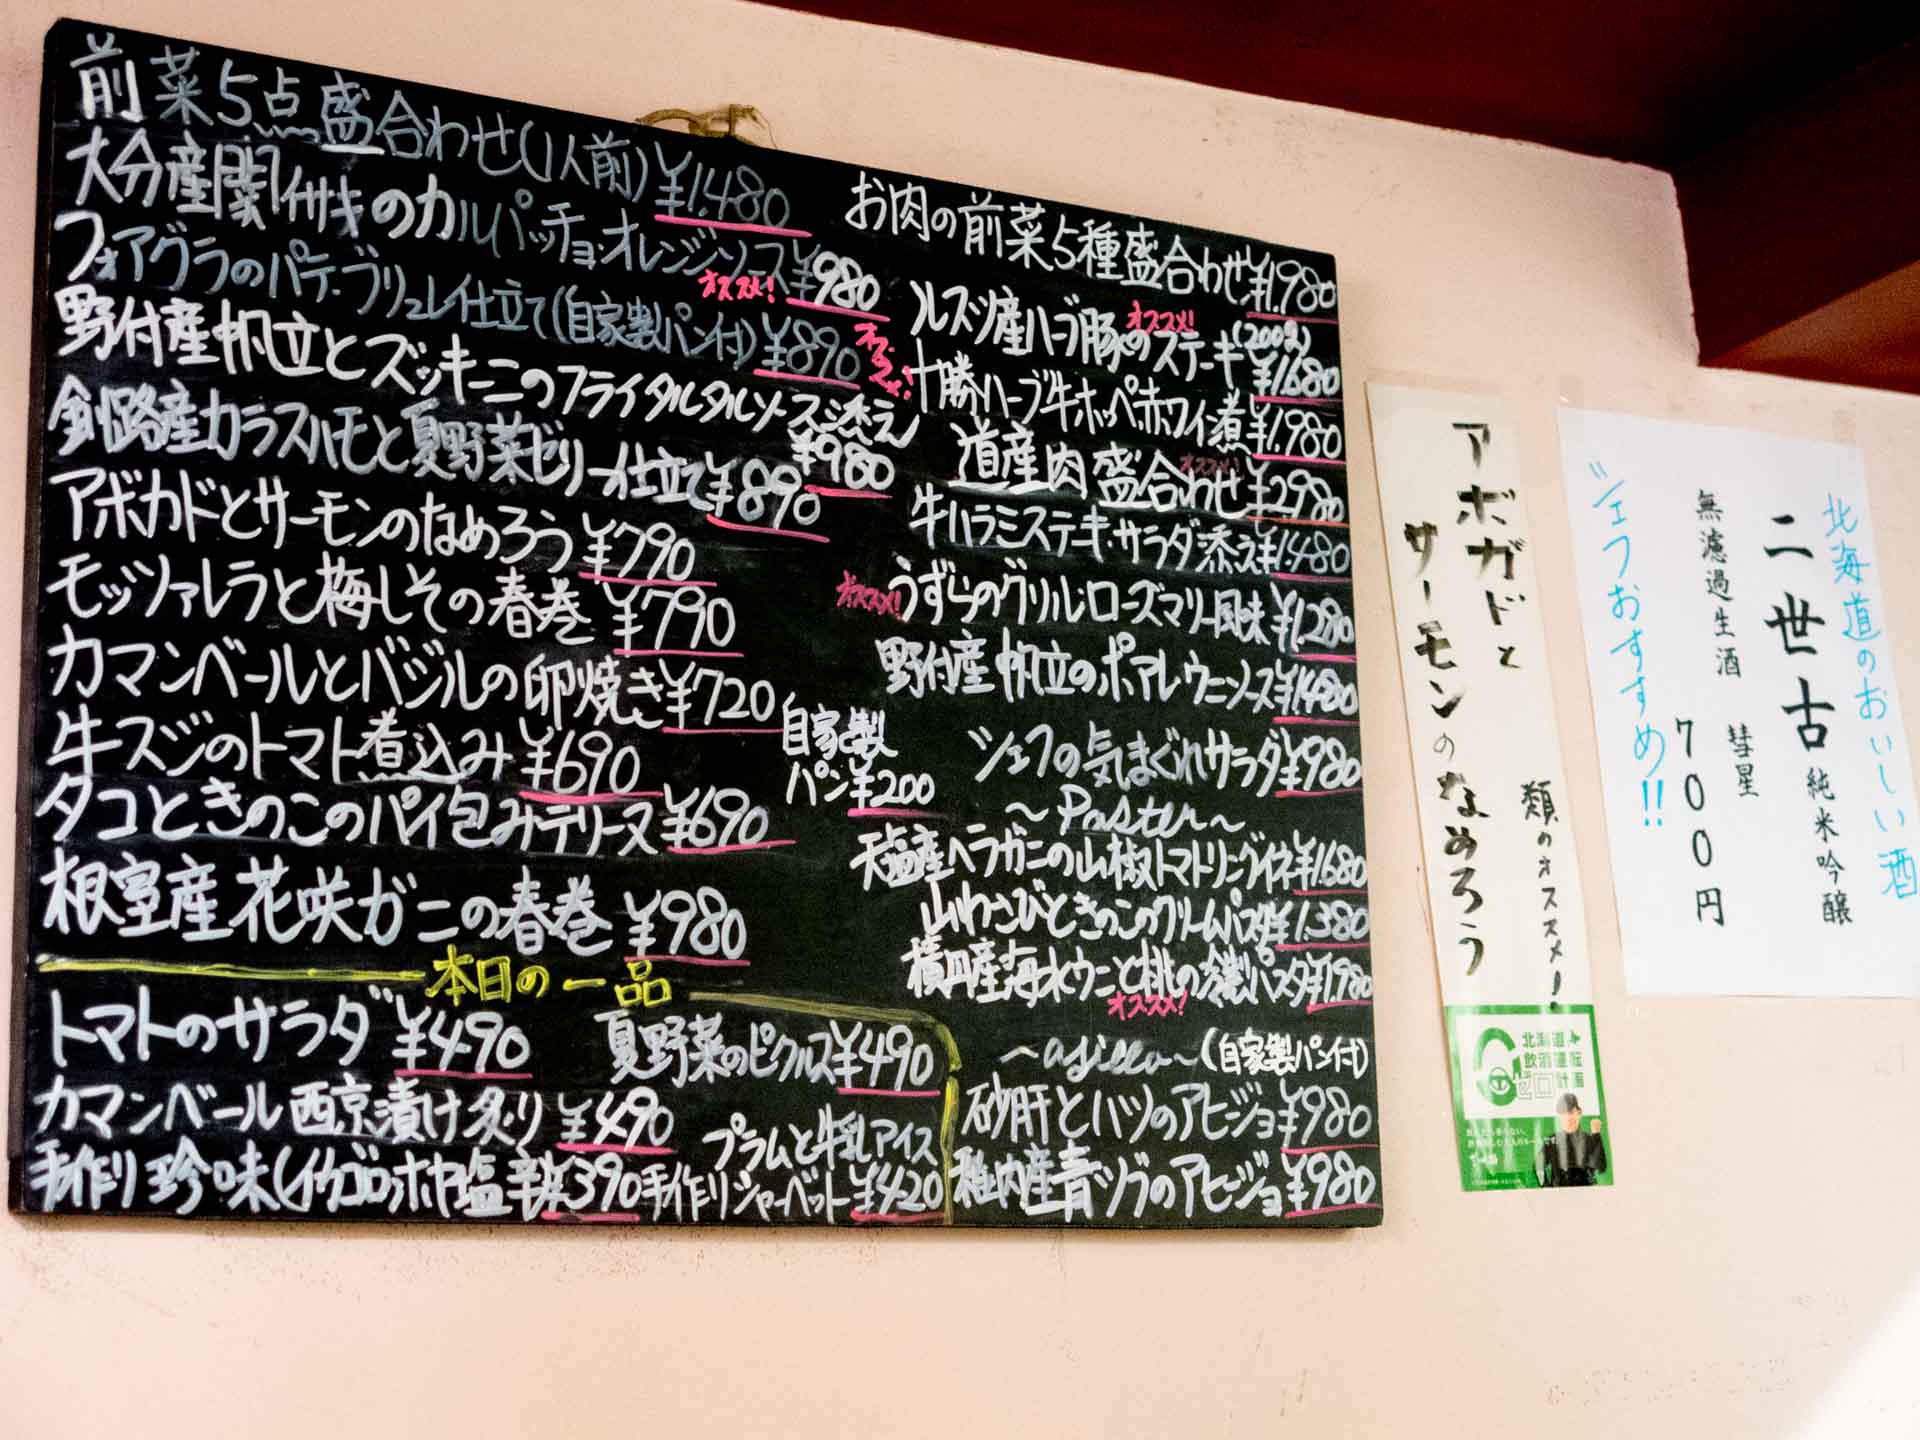 前菜5点盛合わせ(1人前)¥1.480
大分産関イサキのカルパッチョ・オレンジソース¥980
オススメ!
フォアグラのパテ・ブリュレ仕立て(自家製パン付)¥890
オススメ!
野付産帆立とズッキーニのフライタルタルソース添え
¥980
釧路産カラスハモと夏野菜ゼリー仕立て¥890
アボカドとサーモンのなめろう¥790
モッツァレラと梅しその春巻¥790
カマンベールとバジルの卵焼き¥720
牛スジのトマト煮込み¥690
タコときのこのパイ包みテリーヌ¥690
根室産花咲ガニの春巻¥980
自家製
パン¥200
お肉の前菜5種盛合わせ¥1.980
オススメ!
ルスツ産ハーブ豚のステーキ(200g)
¥1.680
十勝ハーブ牛ホッペ赤ワイン煮¥1.980
オススメ!
道産肉盛合わせ¥2.980
牛ハラミステーキ・サラダ添え¥1.480
オススメ!
うずらのグリル・ローズマリー風味¥1.280
野付産帆立のポアレウニソース¥1.480
シェフの気まぐれサラダ¥980
~Paster~
天塩産ヘラガニの山椒トマトリングイネ¥1.680
山わさびときのこのクリームパスタ¥1.380
産海水ウニと桃の冷製パスタ¥1.980
オススメ!
(自家製パン付)
砂肝とハツのアヒージョ¥980
稚内産青ツブのアヒージョ¥980
本日の一品
トマトのサラダ¥490
夏野菜のピクルス¥490
カマンベール西京漬け炙り¥490
プラムと牛乳アイス
手作り珍味(イカゴロホヤ塩辛)¥390
手作りシャーベット¥420
アボガドと
サーモンのなめろう
類のオススメ!
北海道
飲酒運転
ゼロ計画
北海道のおいしい酒
二世古 純米吟醸
無濾過生酒 彗星
700円
シェフおすすめ!!